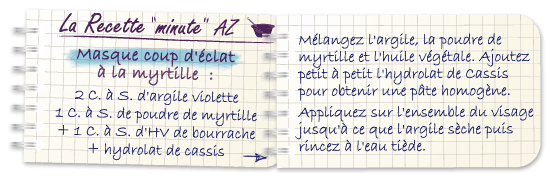 La Recette "minute" AZ
Masque coup d'éclat
à la myrtille :
2 C. à S. d'argile violette
1 C. à S. de poudre de myrtille
+ 1 C. à S. d'HV de bourrache
+ hydrolat de cassis
Mélangez l'argile, la poudre de
myrtille et l'huile végétale. Ajoutez
petit à petit l'hydrolat de Cassis
pour obtenir une pâte homogène.
Appliquez sur l'ensemble du visage
jusqu'à ce que l'argile sèche puis
rincez à l'eau tiède.